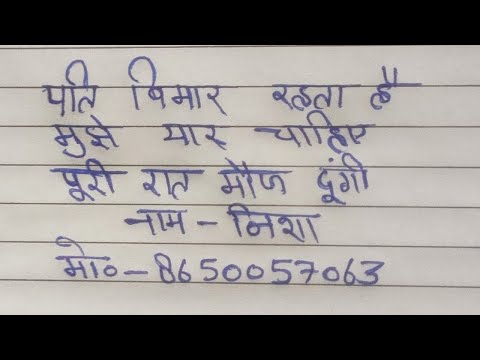 पति बिमार रहता है
मुझे यार चाहिए
पूरी रात मौज दूंगी
नाम - निशा
मो० - 8650057063